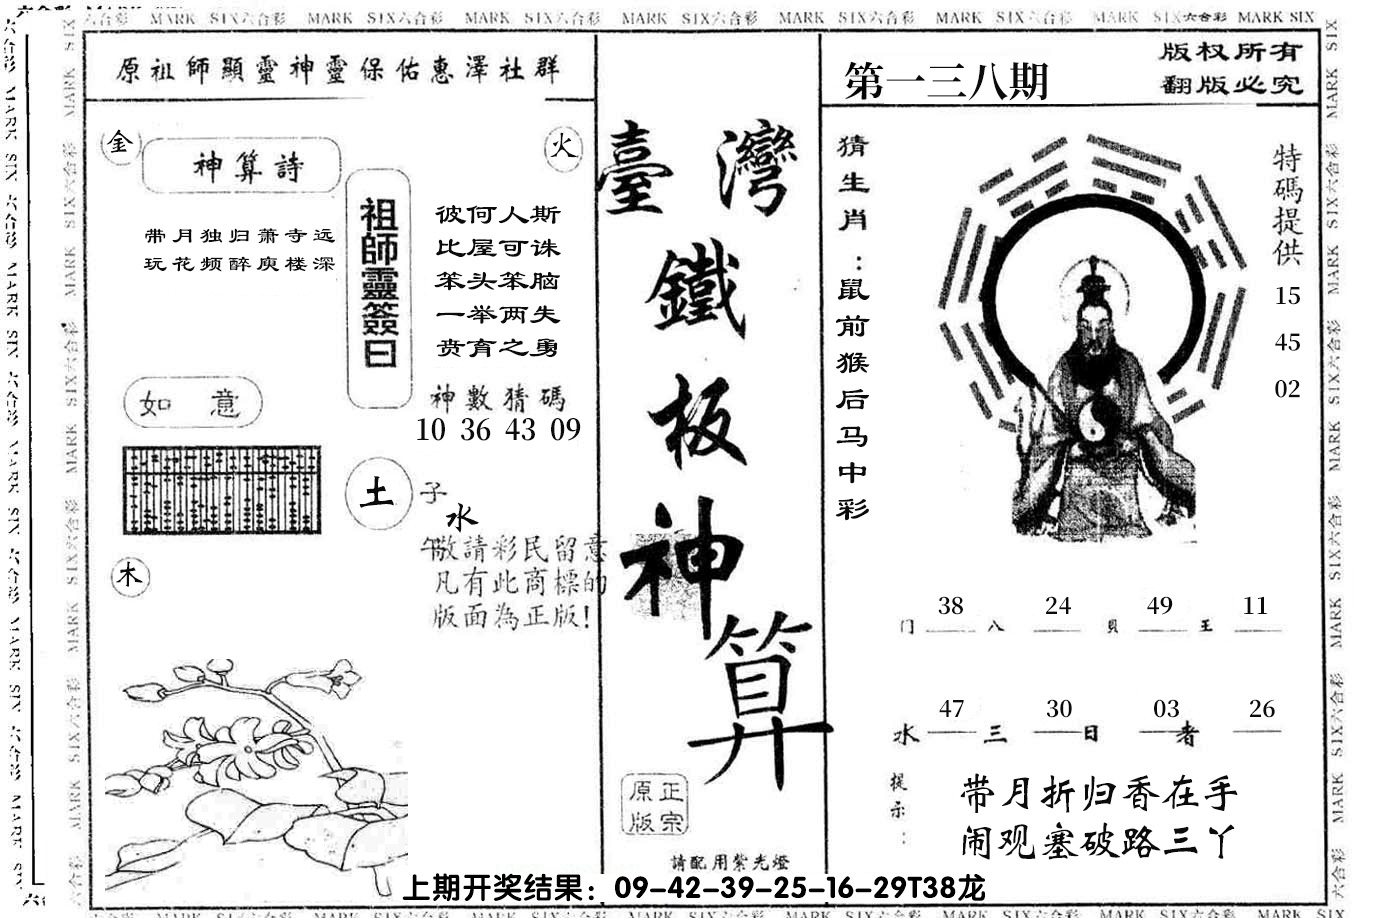 六合彩 MARK SIX六合彩 MARK SIX六合彩 MARK SIX六合彩 MARK SIX六合彩 MARK SIX六合彩 MARK SIX六合彩 MARK SIX六合彩 MARK SIX
原祖師顯靈神靈保佑惠澤社群
金
火
神算詩
带月独归萧寺远
玩花频醉庾楼深
祖師靈簽曰
彼何人斯
比屋可诛
笨头笨脑
一举两失
贲育之勇
神數猜碼
10 36 43 09
如 意
土
子
水
午
木
敬請彩民留意
凡有此商標的
版面為正版!
臺灣
鐵
板
神
算
原正
版宗
請配用紫光燈
第一三八期
版权所有
翻版必究
猜生肖:鼠前猴后马中彩
特碼提供
15
45
02
38 24 49 11
门 八 貝 王
47 30 03 26
水 三 日 者
提示:
带月折归香在手
闹观塞破路三丫
上期开奖结果：09-42-39-25-16-29T38龙